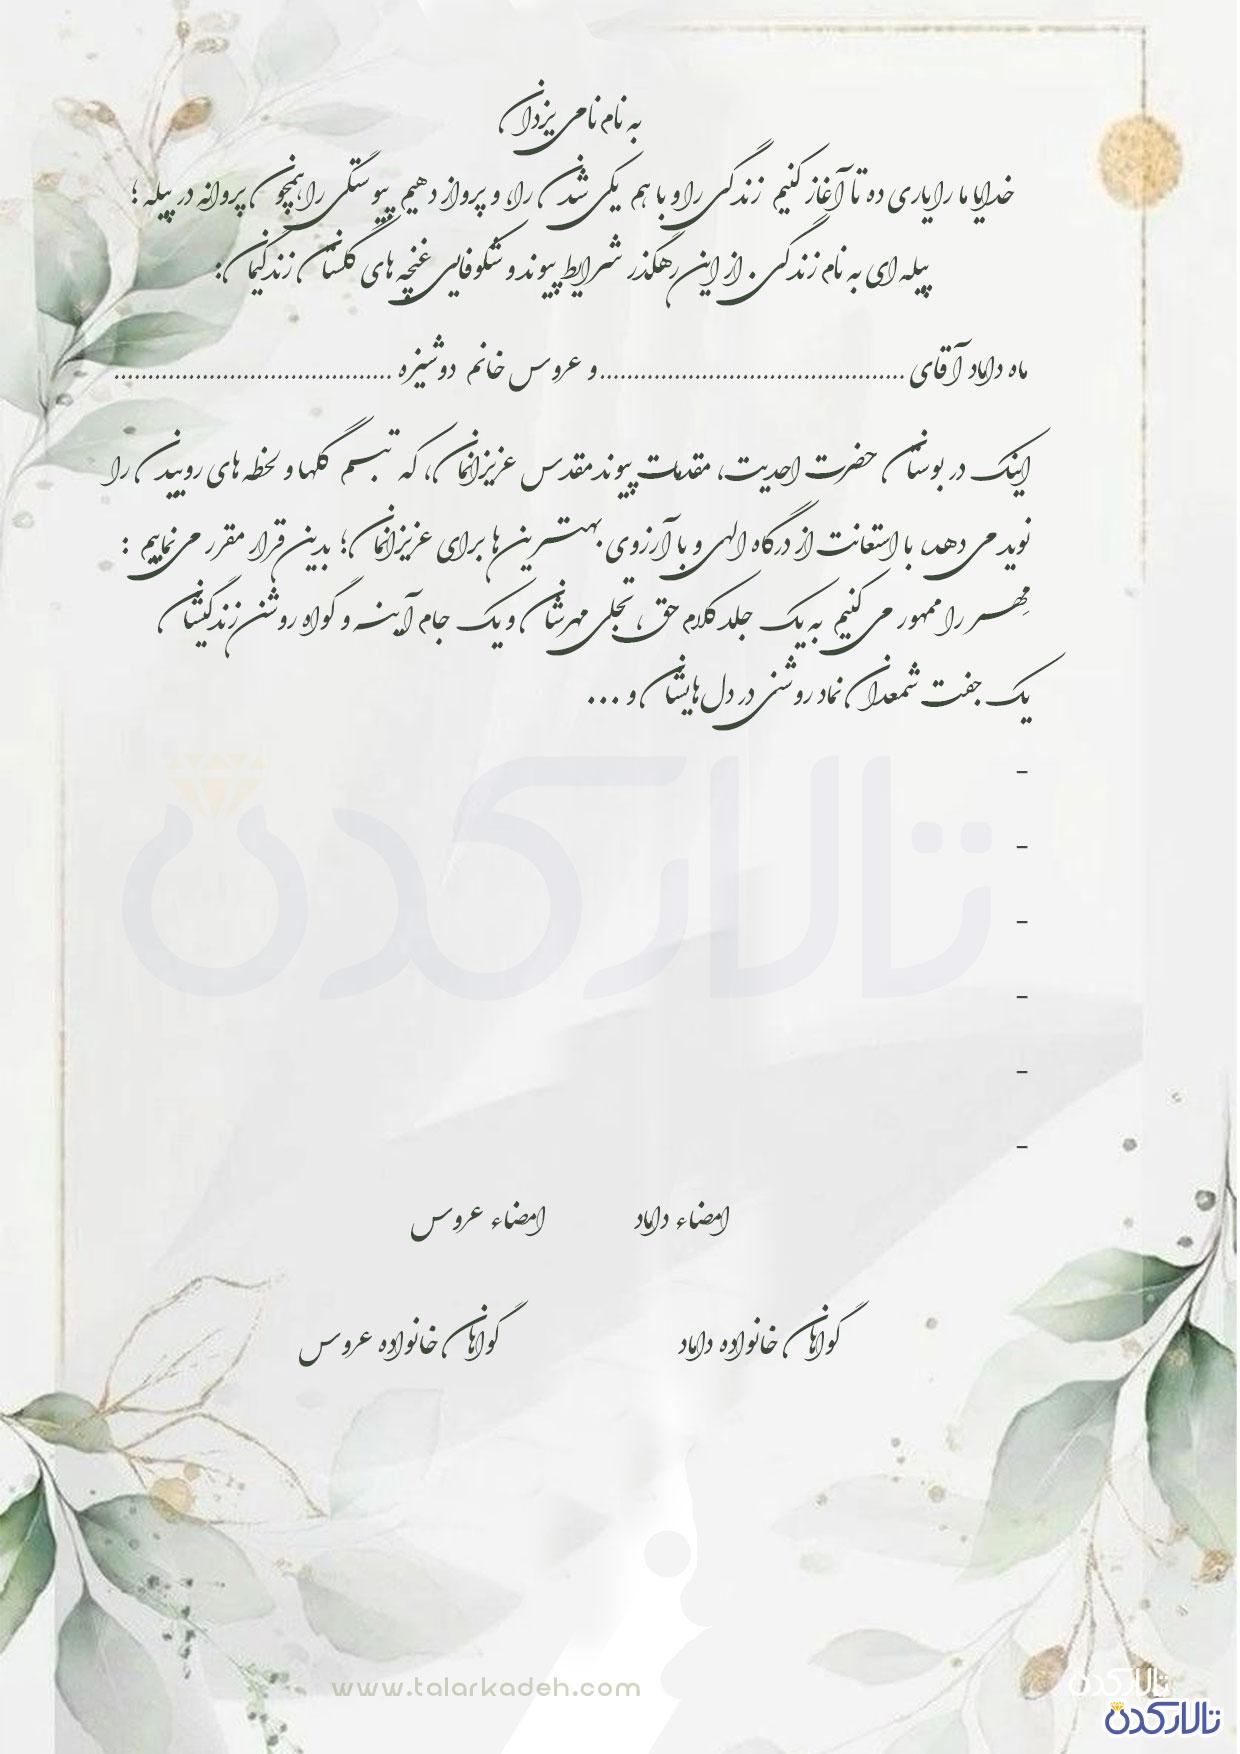 به نام نامی یزدان
خدایا ما را یاری ده تا آغاز کنیم زندگی را و با هم یکی شدن را، و پرواز دهیم پیوستگی را همچون پروانه در پیله ؛
پیله ای به نام زندگی . از این رهگذر شرایط پیوند و شکوفایی غنچه های گلستان زندگیمان:
ماه داماد آقای ............................................ و عروس خانم دوشیزه ........................................
اینک در بوستان حضرت احدیت، مقدمات پیوند مقدس عزیزانمان، که تبسم گلها و لحظه های روییدن را
نوید می دهد، با استعانت از درگاه الهی و با آرزوی بهترین ها برای عزیزانمان؛ بدین قرار مقرر می نماییم :
مِهر را ممهور می کنیم به یک جلد کلام حق، تجلی مهرشان و یک جام آینه و گواه روشن زندگیشان
یک جفت شمعدان نماد روشنی در دل هایشان و ...
-
-
-
-
-
-
تالارکده
امضاء داماد امضاء عروس
گواهان خانواده داماد گواهان خانواده عروس
www.talarkadeh.com
تالارکده
تالارکده